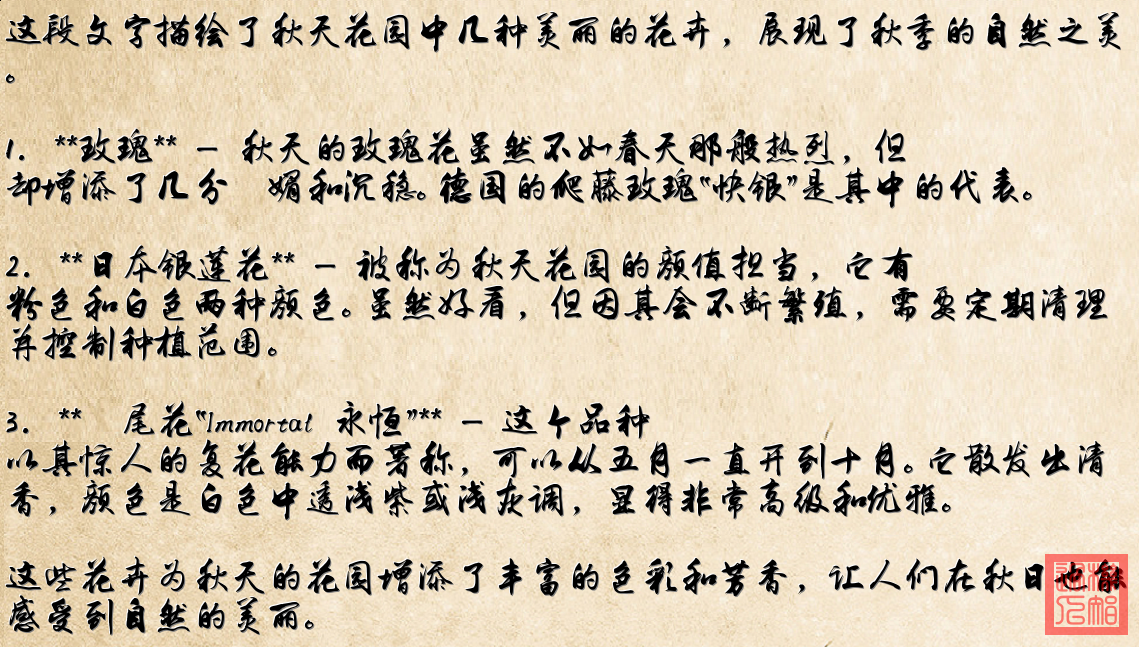 这段文字描绘了秋天花园中几种美丽的花卉，展现了秋季的自然之美
。
1. **玫瑰** - 秋天的玫瑰花虽然不如春天那般热烈，但
却增添了几分 媚和沉稳。德国的爬藤玫瑰“快银”是其中的代表。
2. **日本银莲花** - 被称为秋天花园的颜值担当，它有
粉色和白色两种颜色。虽然好看，但因其会不断繁殖，需要定期清理
并控制种植范围。
3. ** 尾花“Immortal 永恒”** - 这个品种
以其惊人的复花能力而著称，可以从五月一直开到十月。它散发出清
香，颜色是白色中透浅紫或浅灰调，显得非常高级和优雅。
这些花卉为秋天的花园增添了丰富的色彩和芳香，让人们在秋日也能
感受到自然的美丽。